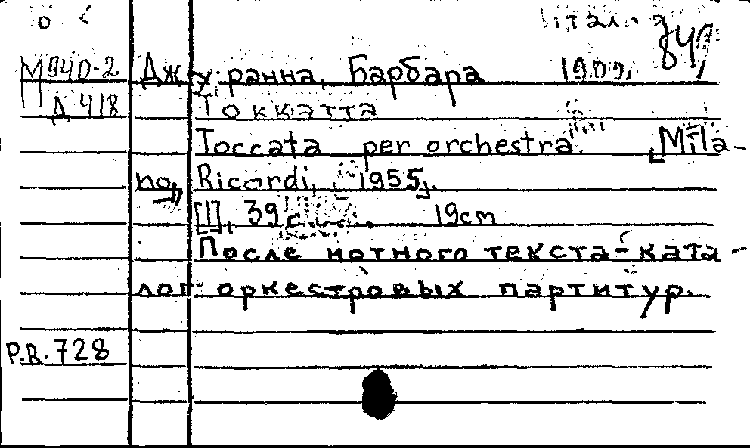 М940-2 Джуранна, Барбара 1909,
Д 418 Токкатта
Toccata per orchestra. [Mila-
no], Ricordi, [1955].
[1], 39 с. 19cm
После нотного текста-ката-
лог оркестровых партитур.
P.R. 728